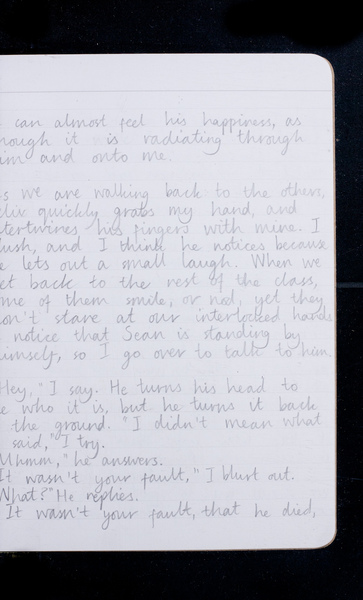 can almost feel his happiness, as
hough it is radiating through
im and onto me.
s we are walking back to the others,
lix quickly grabs my hand, and
tertwines his fingers with mine. I
lush, and I think he notices because
e lets out a small laugh. When we
et back to the rest of the class,
ome of them smile, or nod, yet they
on't stare at our interlocked hands
notice that Sean is standing by
himself, so I go over to talk to him.
Hey," I say. He turns his head to
e who it is, but he turns it back
the ground. "I didn't mean what
said," I try.
Mhmm," he answers.
It wasn't your fault," I blurt out.
What?" He replies.
It wasn't your fault, that he died,